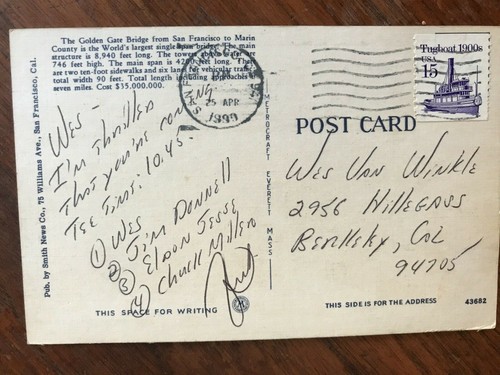 The Golden Gate Bridge from San Francisco to Marin
County is the World's largest single span bridge. The main
structure is 8,940 feet long. The towers above water are
746 feet high. The main span is 4200 feet long. There
are two ten-foot sidewalks and six lanes for vehicular traffic,
total width 90 feet. Total length including approaches is
seven miles. Cost $35,000,000.
Pub. by Smith News Co., 75 Williams Ave., San Francisco, Cal.
SAN FRANCISCO
25 APR
1990
Tugboat 1900s
USA
15
Wes -
I'm thrilled
that you're coming.
Tee time: 10:45.
① Wes
② Jim Donnell
③ Eldon Jesse
④ Chuck Miller
METROCRAFT EVERETT MASS
POST CARD
Wes Van Winkle
2956 Hillegass
Berkeley, Cal
94705
THIS SPACE FOR WRITING
THIS SIDE IS FOR THE ADDRESS
43682